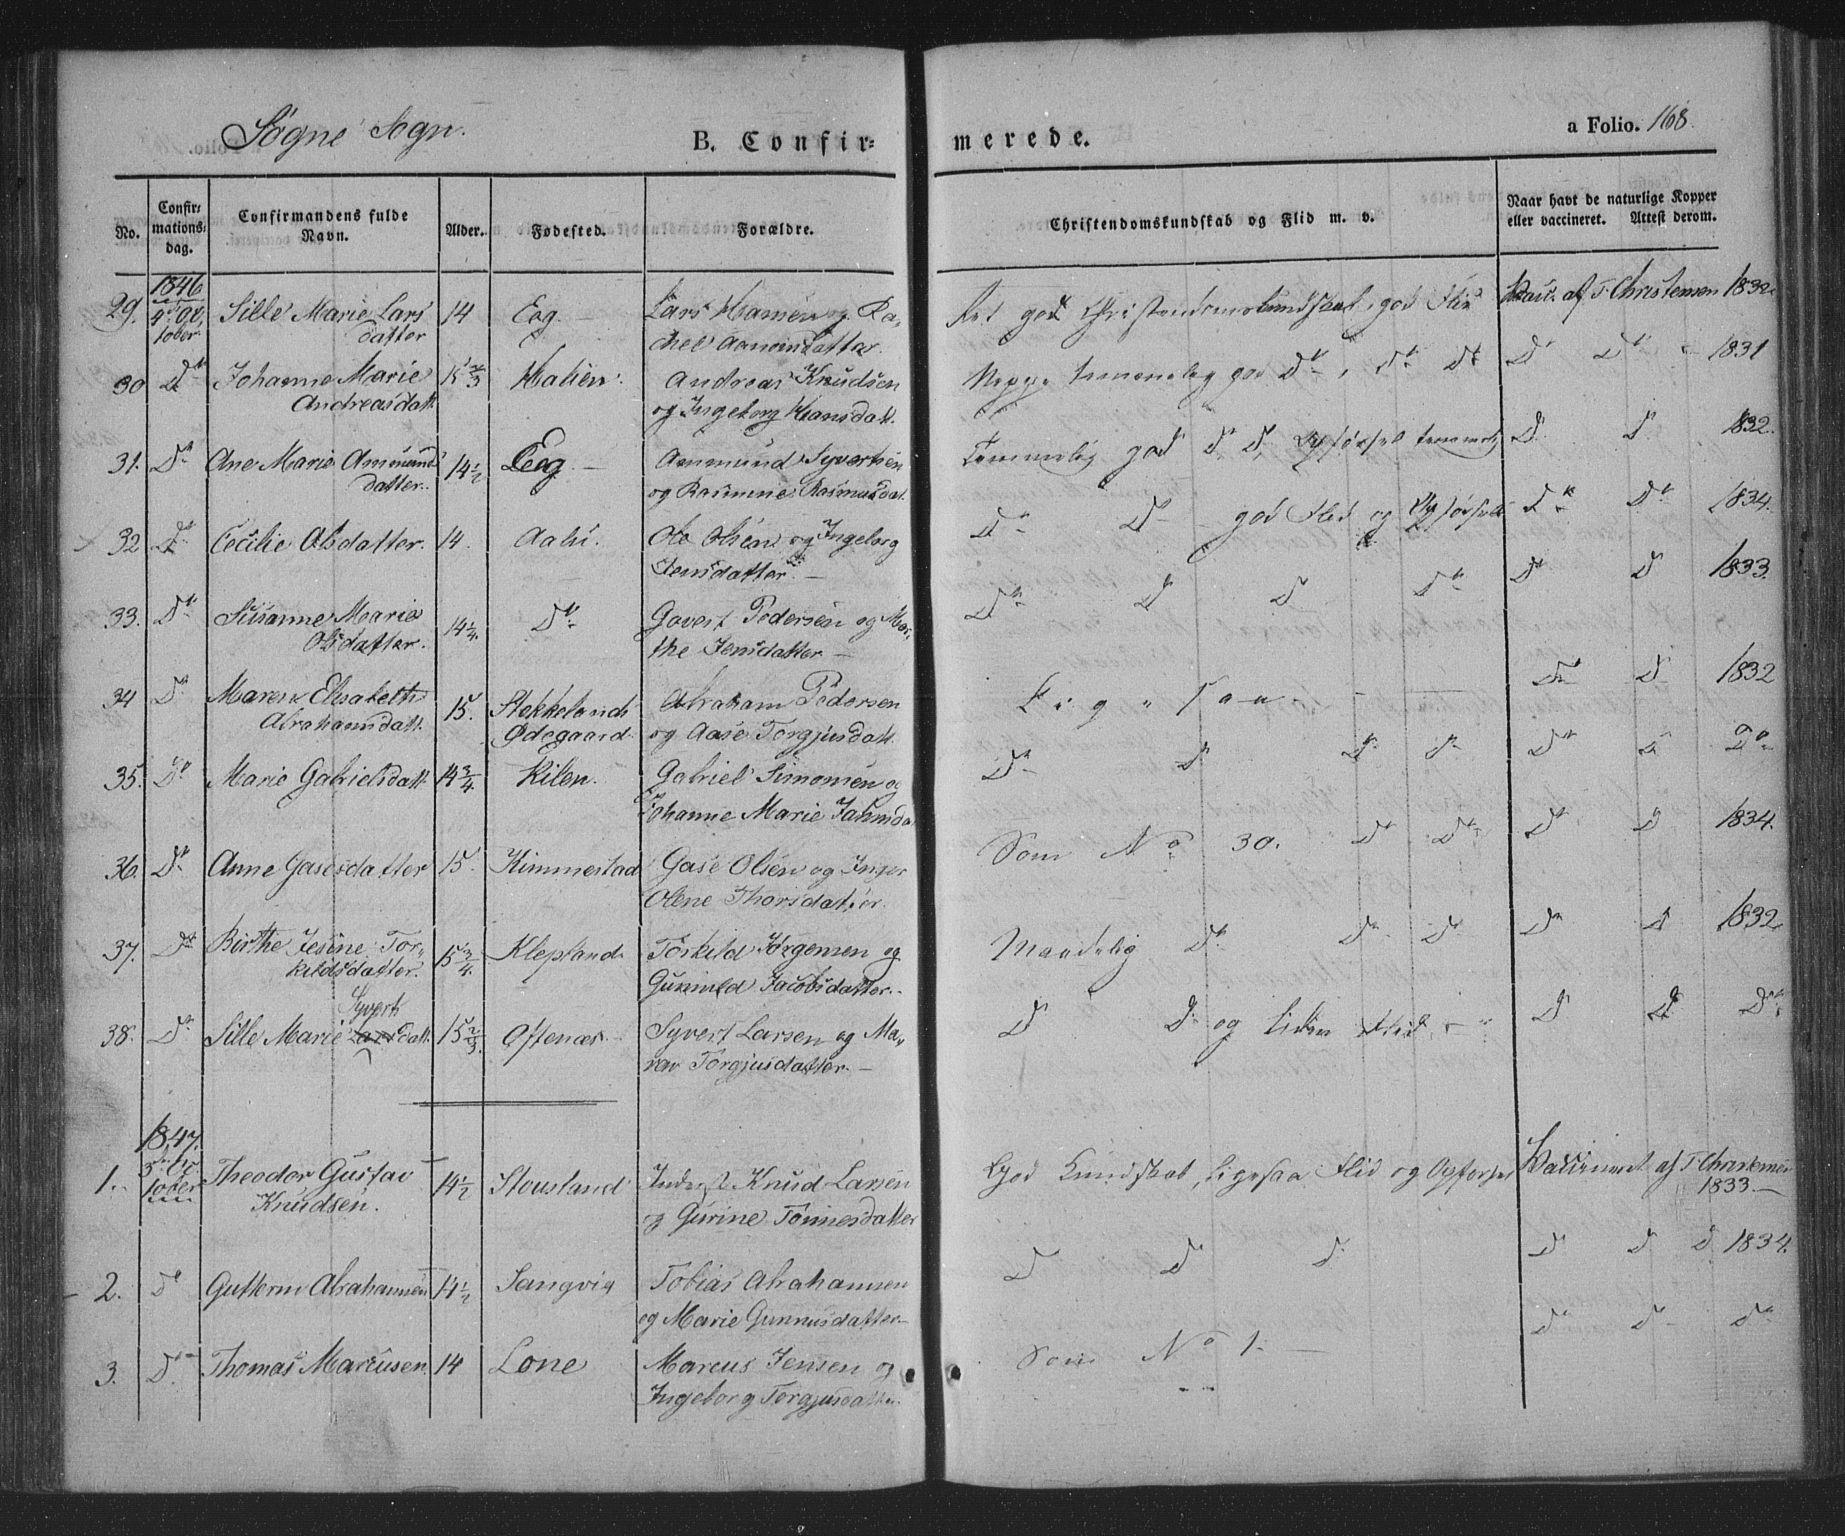 Søgne Sogn.
B. Confirmerede.
a Folio. 168.
No.
Confirmationsdag.
Confirmandens fulde Navn.
Alder.
Fødested.
Forældre.
Christendomskundskab og Flid m. v.
Naar havt de naturlige Kopper eller vaccineret. Attest derom.
1846
29. 4de October Sille Marie Lars 14 Eeg. Lars Hansen og Ra-
datter chel Aanensdatter.
Ret god Christendomskundskab, god Flid Vacc. af T. Christensen 1832
30 Do Johanne Marie 15 2/3 Andreas Knudsen
Andreasdatt. og Ingeborg Hansdatt.
Neppe temmelig god Do, Do Do Do Do 1831
31. Do Ane Marie Amund 14 1/2 Eeg Aanmund Syvertsen
datter. og Rasmine Rasmusdat.
Temmelig god D D, Opførsel temmelig D D 1832.
32 Do Cecilie Olsdatter. 14. Ole Olsen og Ingeborg
Jensdatter.
Do Do god Flid og Opførsel Do Do 1834.
33. Do Susanne Marie 14 1/4. Do Govert Pedersen og Mar-
Olsdatter. the Jensdatter
Do D D Do Do D 1833.
34 Do Maren Elisabeth 15. Stokkelands Abraham Pedersen
Abrahamsdatt. Ødegaard. og Aase Torgjusdatt.
Ligesaa Do D 1832
35. Do Marie Gabrielsdatt. 14 3/4 Kilen. Gabriel Simonsen og
Johanne Marie
Do D Do Do Do D Do
36. Do Anne Gasesdatter 15. Kimmestad Gase Olsen og Inger
Olene Thorsdatter.
Som No 30. Do Do Do D 1834.
37. Do Birthe Jesine Tor- 15 3/4. Klepland Torkild Jørgensen og
kildsdatter. Gunnild Jacobsdatter.
Maadelig Do Do Do Do D 1832.
Syverts
38. Do Sille Marie Larsdatt. 15 2/3. Oftenæs. Syvert Larsen og Ma-
ren Torgjusdatter.
D D og liden Flid D D Do
1847.
1. 3de October Theodor Gustav 14 1/2 Stousland Knud Larsen
Knudsen. og Gurine Tønnesdatter
God Kundskab, ligesaa Flid og Opførsel Vaccineret af T. Christensen
1833.
2. Do Guttorm Abrahamsen 14 1/2 Langvig Tobias Abrahamsen
og Marie Gunnusdatter
D D D D D D 1834.
3. Do Thomas Marcusen 14 Lone Marcus Jensen og
Ingeborg Torgjusdatter.
Som No 1. Do Do Do